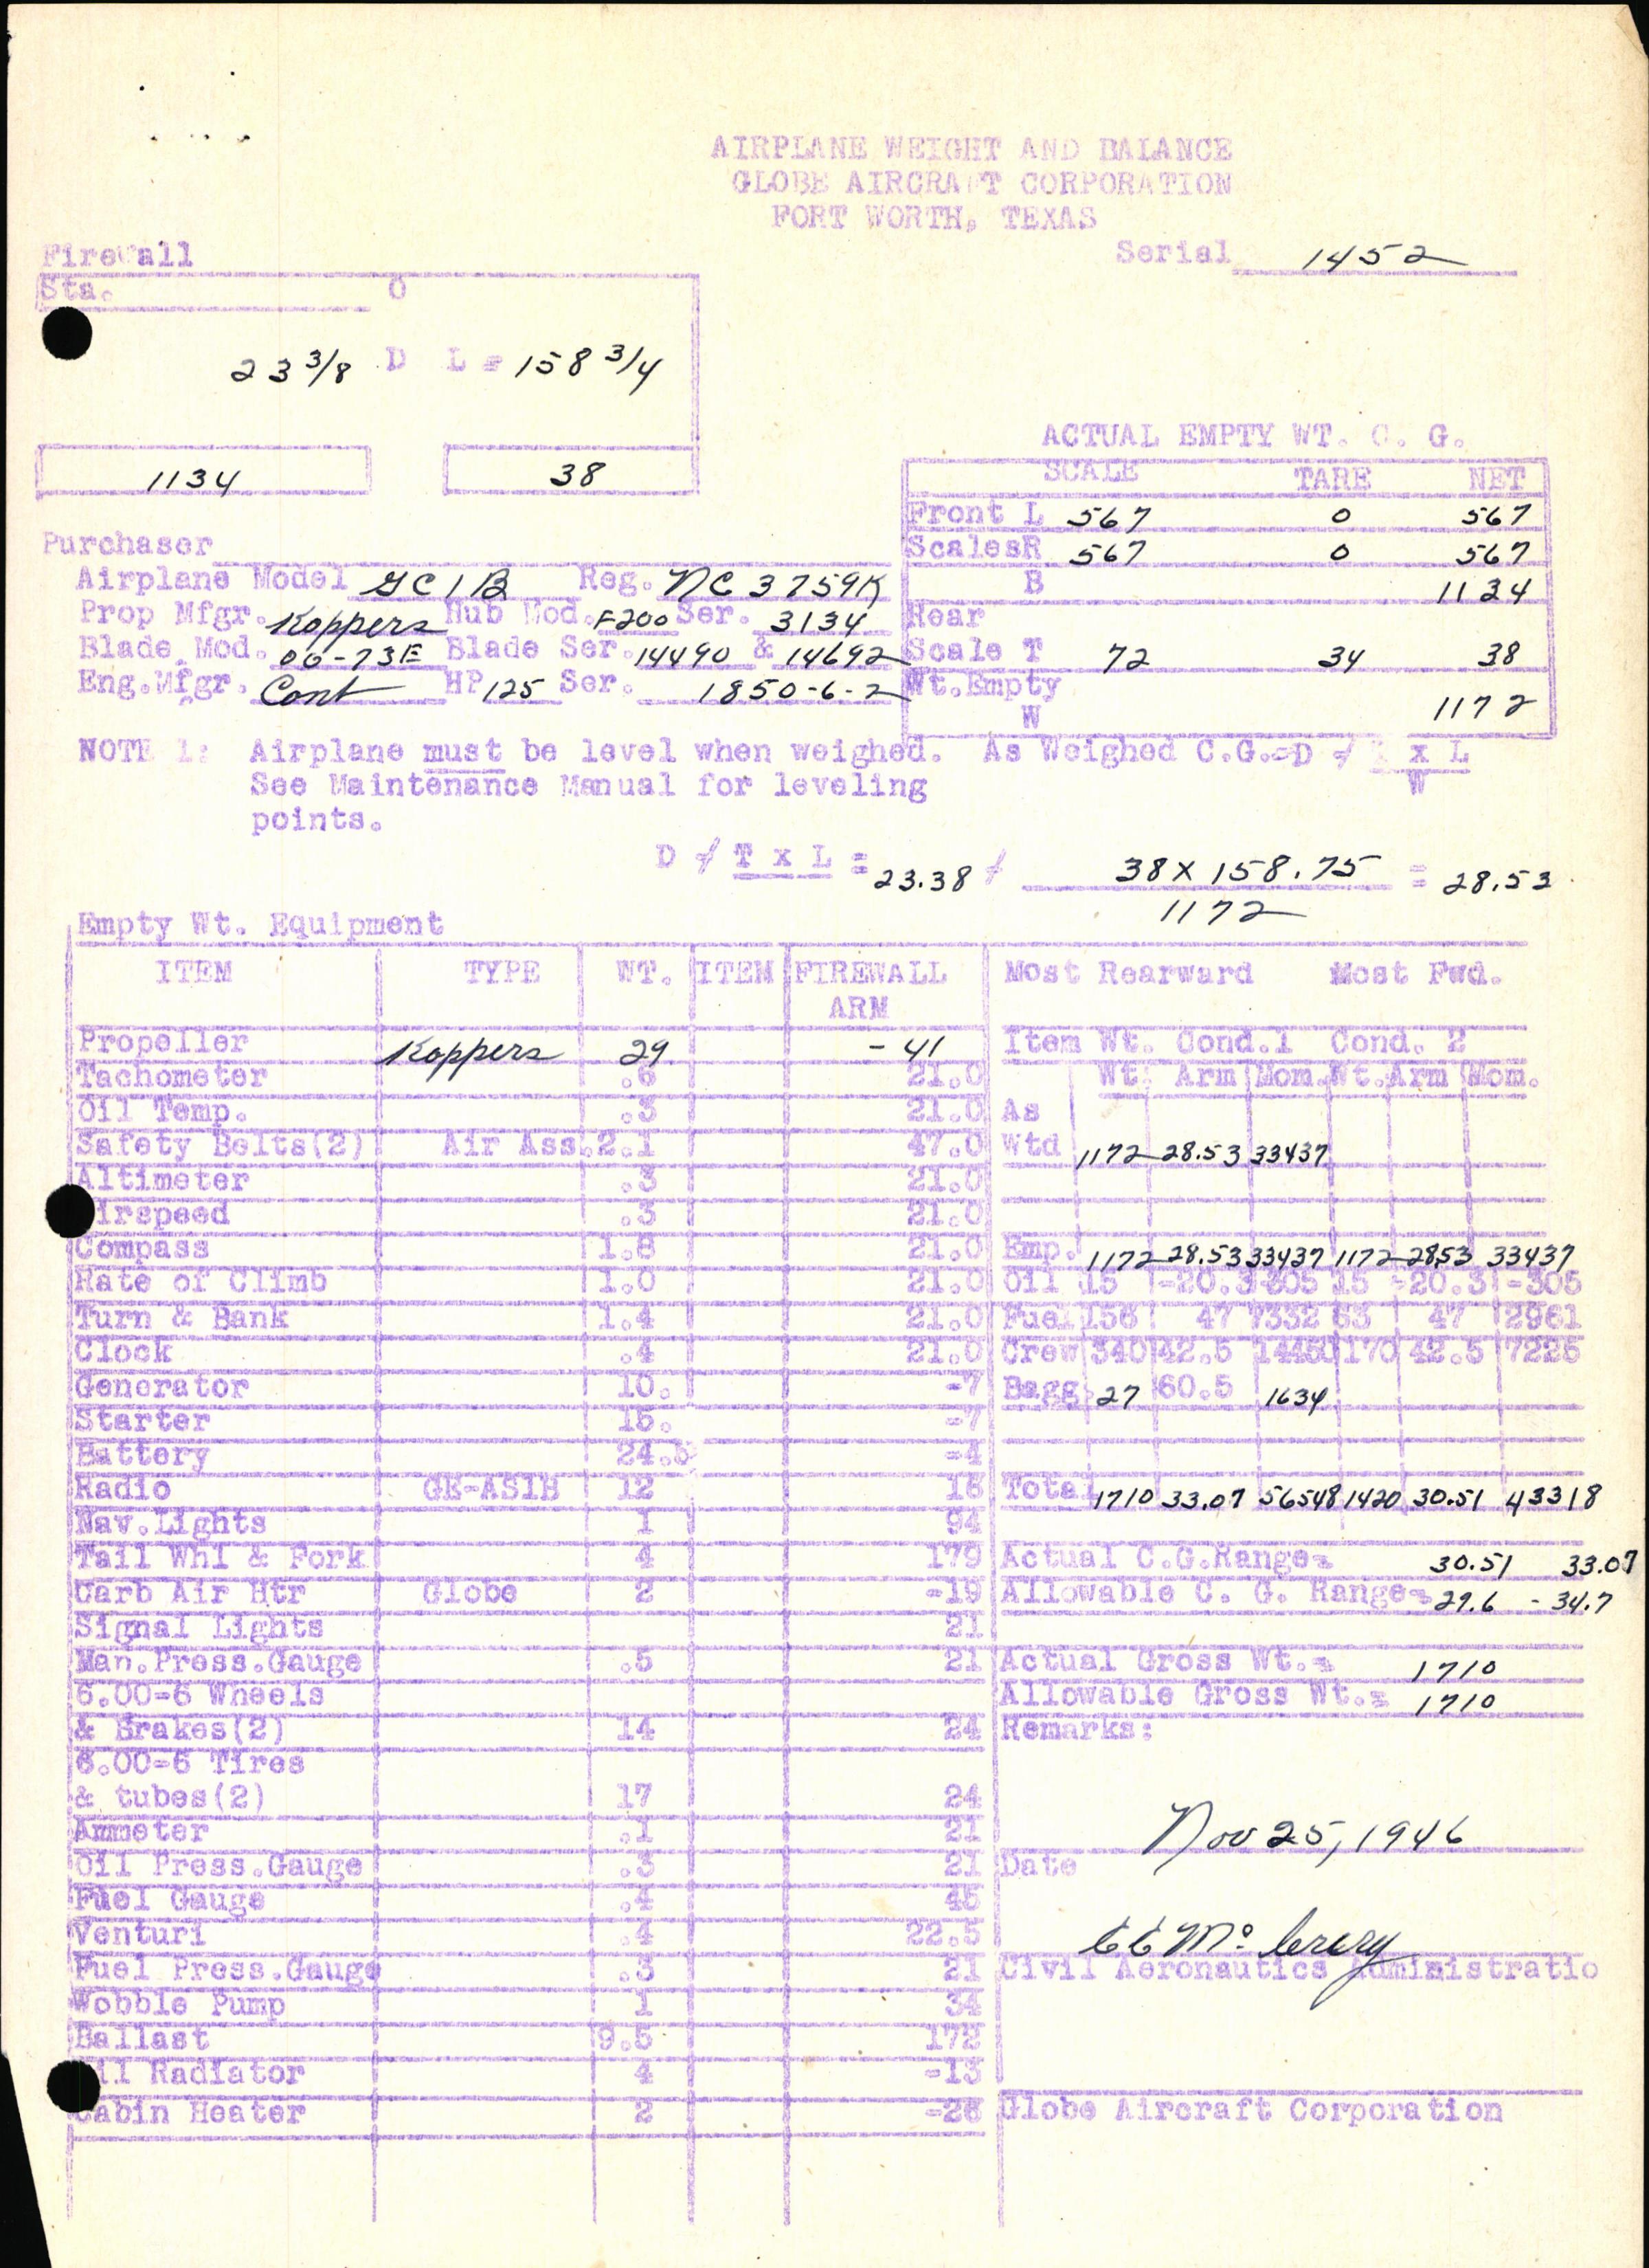 AIRPLANE WEIGHT AND BALANCE
GLOBE AIRCRAFT CORPORATION
FORT WORTH, TEXAS
Serial 1452
Firewall
Sta. 0
23 3/8 D L = 158 3/4
1134 38
ACTUAL EMPTY WT. C. G.
SCALE TARE NET
Front L 567 0 567
Scales R 567 0 567
B 1134
Rear
Scale T 72 34 38
Wt. Empty
W 1172
Purchaser
Airplane Model GC1B Reg. NC 3759K
Prop Mfgr. Koppers Hub Mod. F200 Ser. 3134
Blade Mod. 00-73E Blade Ser. 14490 & 14692
Eng. Mfgr. Cont HP 125 Ser. 1850-6-2
NOTE 1: Airplane must be level when weighed. As Weighed C.G.=D ≠ x L
W
See Maintenance Manual for leveling
points.
D ≠ T x L = 23.38 ≠ 38 x 158.75 = 28.53
1172
Empty Wt. Equipment
ITEM TYPE WT. ITEM FIREWALL
ARM
Propeller Koppers 29 -41
Tachometer 21.0
Oil Temp. .3 21.0
Safety Belts(2) Air Ass. 2.1 47.0
Altimeter .3 21.0
irspeed .3 21.0
Compass 21.0
Rate of Climb 1.0 21.0
Turn & Bank 1.4 21.0
Clock .4 21.0
Generator 10. -7
Starter 15. -7
Battery 24. -4
Radio GE-AS1B 12
Nav. Lights 1 94
Tail Whl & Fork 4 179
Carb Air Htr Globe 2 -19
Signal Lights 21
Man. Press. Gauge .5 21
6.00-6 Wheels
& Brakes(2) 14 24
6.00-6 Tires
& tubes(2) 17 24
Ammeter .1 21
Oil Press. Gauge .3 21
Fuel Gauge .4 45
Venturi .4 22.5
Fuel Press. Gauge .3 21
Wobble Pump 1 34
Ballast 9.5 172
il Radiator 4 -13
Cabin Heater 2
Most Rearward Most Fwd.
Item Wt. Cond. 1 Cond. 2
Wt. Arm Mom. Wt. Arm Mom.
As
Wtd 1172 28.53 33437
Emp. 1172 28.53 33437 1172 2853 33437
Oil 15 -20.3 305 15 -20.3 -305
Fuel 156 47 7332 63 47 2961
Crew 340 42.5 14450 170 42.5 7225
Bagg. 27 60.5 1634
Total 1710 33.07 56548 1420 30.51 43318
Actual C.G. Range= 30.51 33.07
Allowable C. G. Range= 29.6 - 34.7
Actual Gross Wt.= 1710
Allowable Gross Wt.= 1710
Remarks:
Nov 25, 1946
Date
Civil Aeronautics Administratio
Globe Aircraft Corporation